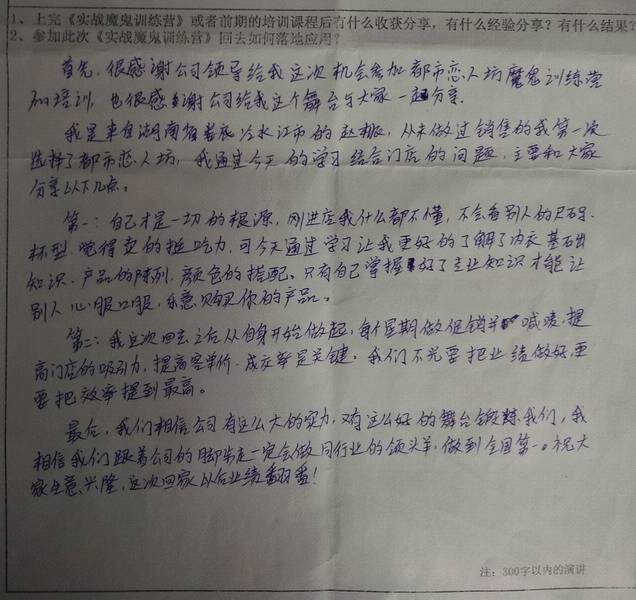 1、上完《实战魔鬼训练营》或者前期的培训课程后有什么收获分享，有什么经验分享？有什么结果？
2、参加此次《实战魔鬼训练营》回去如何落地应用？
首先，很感谢公司领导给我这次机会参加都市恋人坊魔鬼训练营
的培训，也很感谢公司给我这个舞台与大家一起分享.
我是来自湖南省娄底冷水江市的赵，从未做过销售的我第一次
选择了都市恋人坊，我通过今天的学习结合门店的问题，主要和大家
分享以下几点。
第一：自己才是一切的根源，刚进店我什么都不懂，不会看别人的尺码.
杯型.觉得卖的挺吃力，可今天通过学习让我更好的了解了内衣基础
知识.产品的陈列.颜色的搭配。只有自己掌握好了专业知识才能让
别人心服口服，乐意购买你的产品。
第二：我这次回去之后从自身开始做起，每个星期做促销并喊麦，提
高门店的吸引力，提高客单价.成交率是关键。我们不光要把业绩做好，更
要把效率提到最高。
最后，我们相信公司有这么大的实力，又有这么好的舞台锻炼我们，我
相信我们跟着公司的脚步走一定会做同行业的领头羊，做到全国第一。祝大
家生意兴隆，这次回家以后业绩翻番！
注：300字以内的演讲